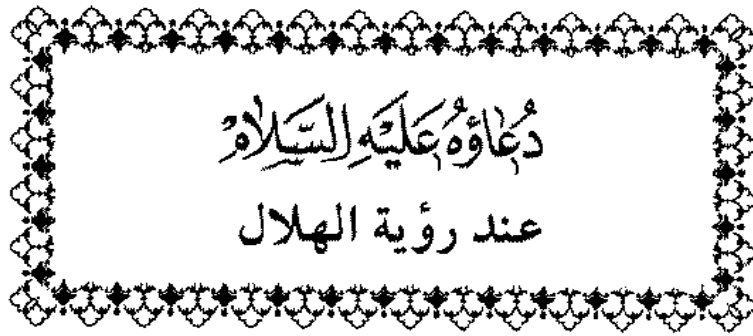 دُعَاؤُهُ عَلَيْهِ السَّلَامُ
عند رؤية الهلال